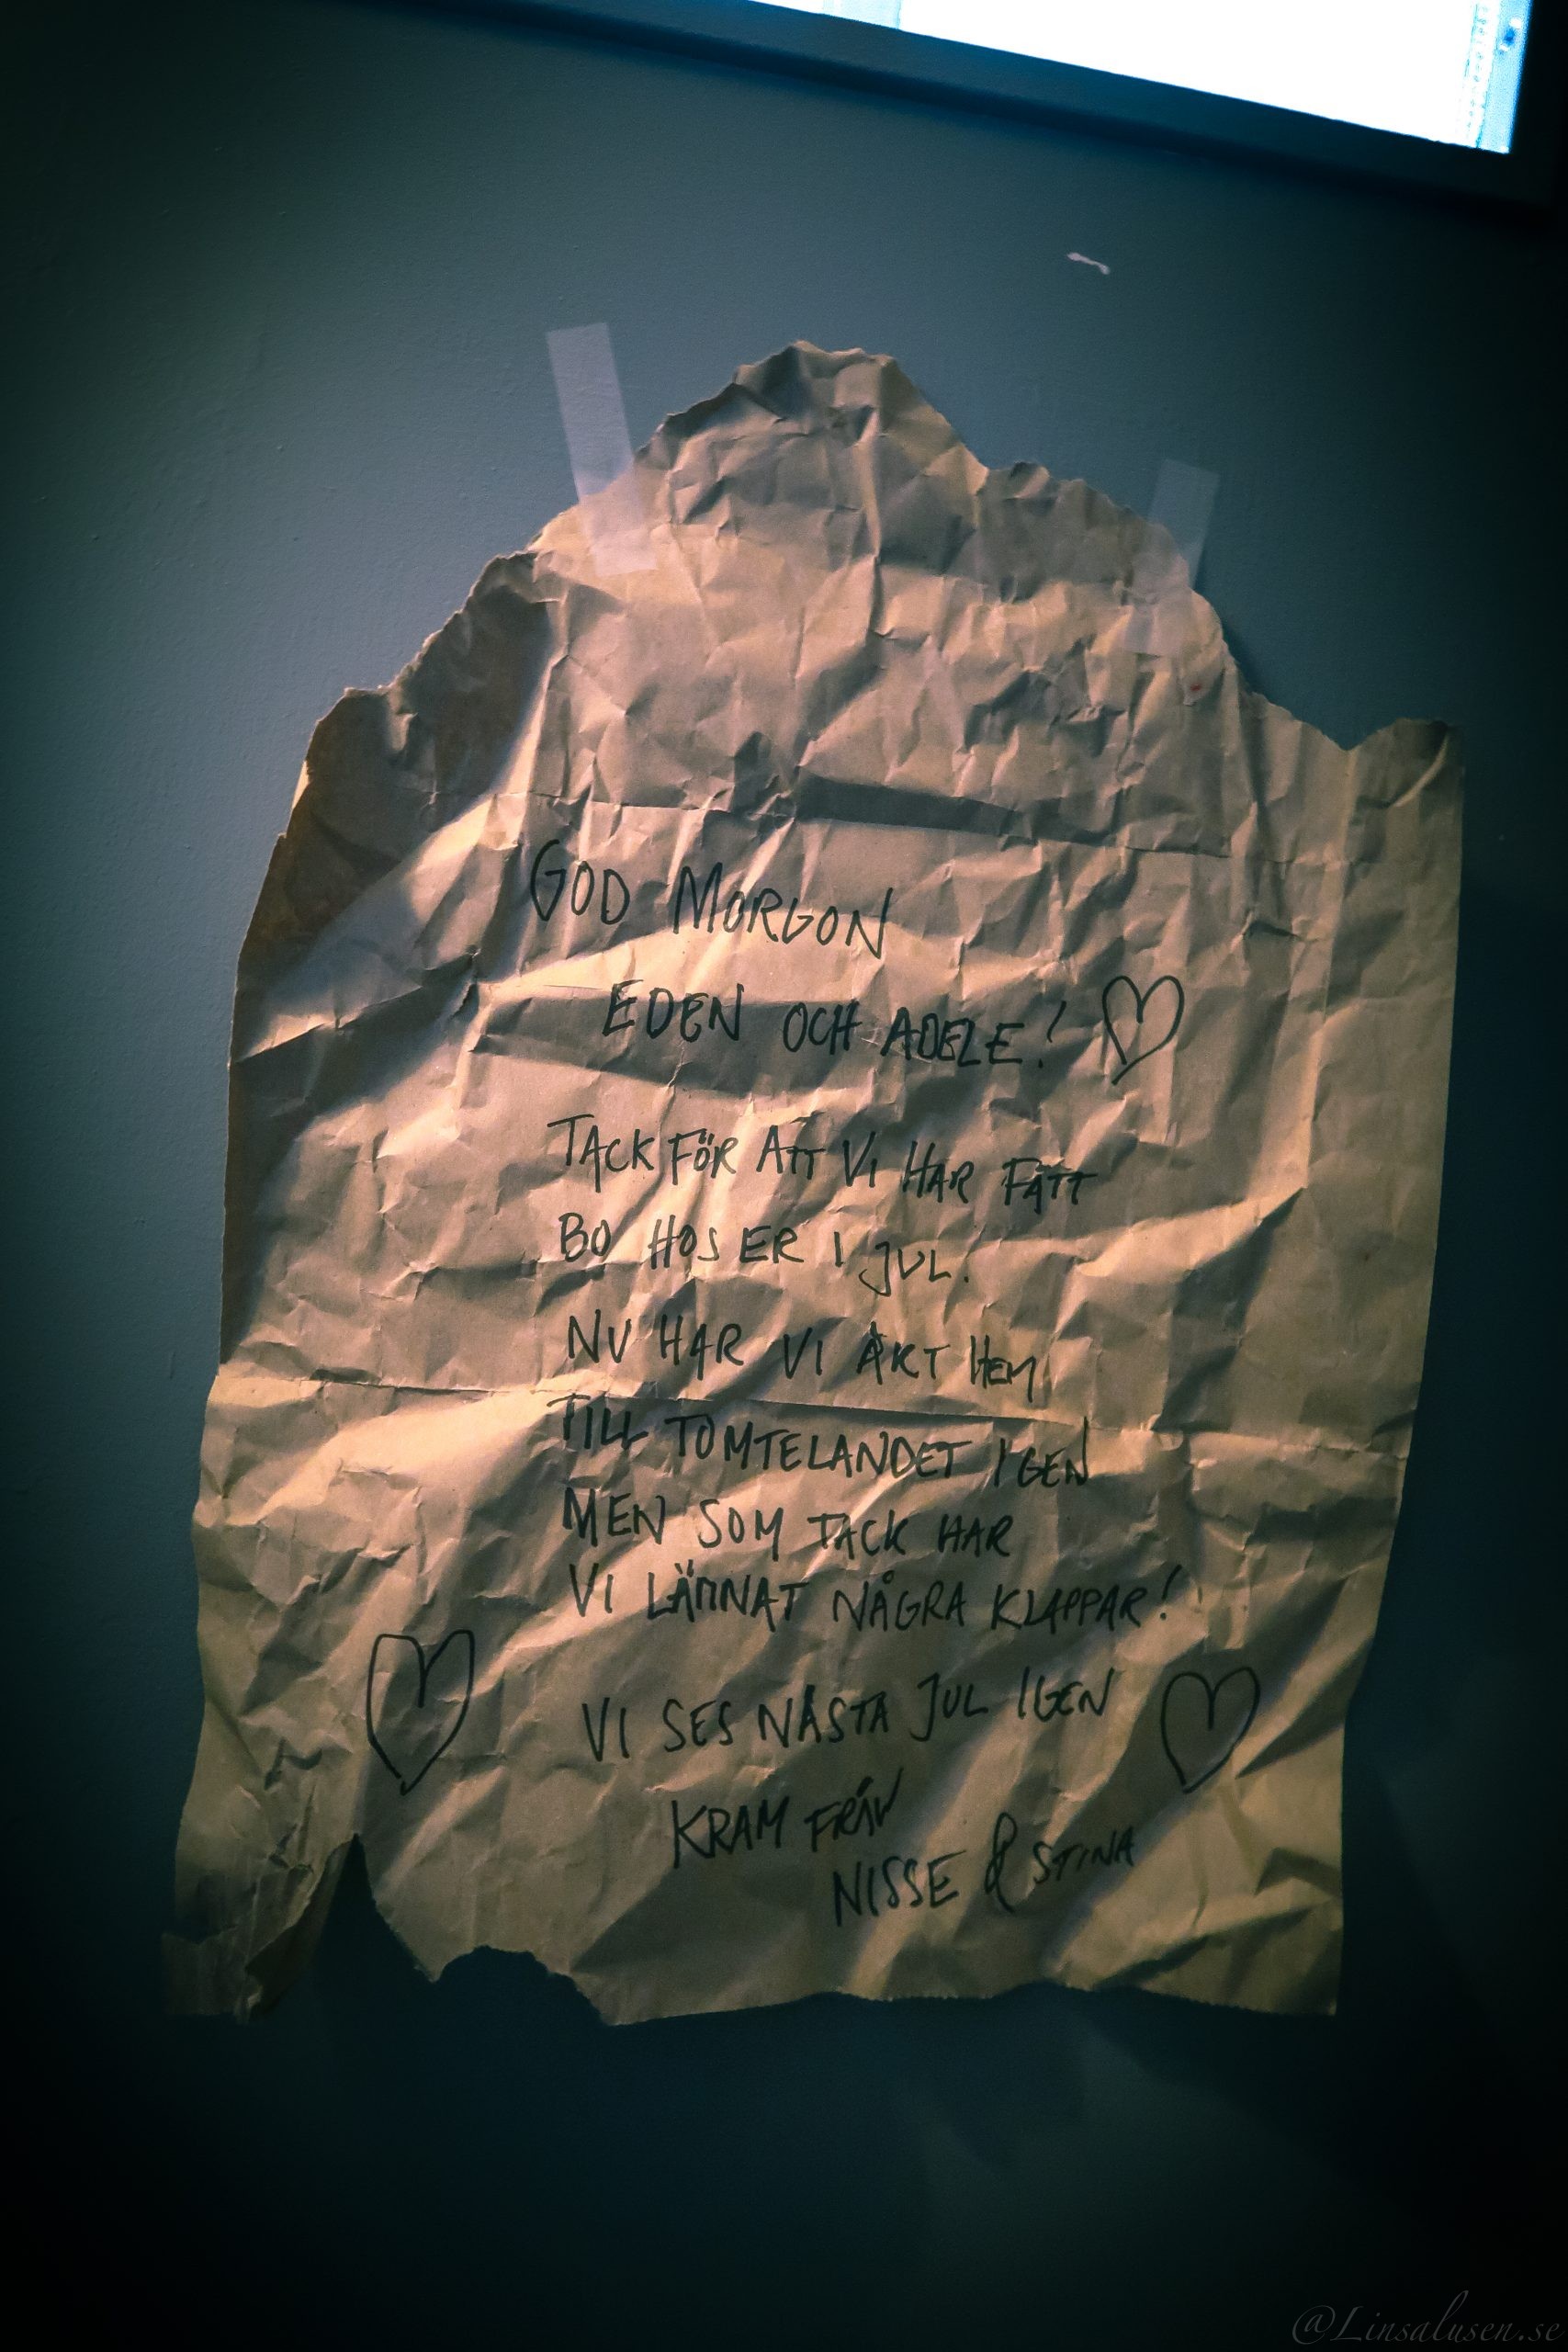 GOD MORGON
EDEN OCH ADELE!
TACK FÖR ATT VI HAR FÅTT
BO HOS ER I JUL.
NU HAR VI ÅKT HEM
TILL TOMTELANDET IGEN
MEN SOM TACK HAR
VI LÄMNAT NÅGRA KLAPPAR!
VI SES NÄSTA JUL IGEN
KRAM FRÅN
NISSE & STINA
@Linsalusen.se